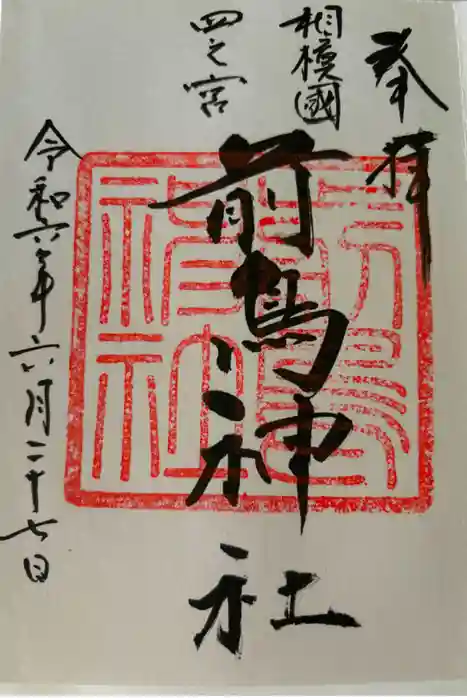 奉拝
相模國
四之宮
前鳥神社
令和六年六月二十七日